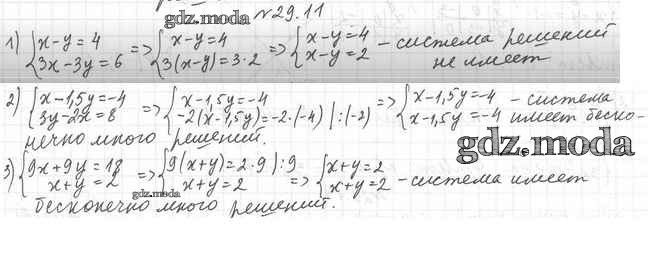 №29.11
gdz.moda
1) {x-y=4 3x-3y=6 => {x-y=4 3(x-y)=3·2 => {x-y=4 x-y=2 - система решений не имеет
2) {x-1,5y=-4 3y-2x=8 => {x-1,5y=-4 -2(x-1,5y)=-2·(-4) |:(-2) => {x-1,5y=-4 x-1,5y=-4 - система имеет беско-
нечно много решений.
gdz.moda
3) {9x+9y=18 x+y=2 => {9(x+y)=2·9 |:9 x+y=2 => {x+y=2 x+y=2 - система имеет
gdz.moda
бесконечно много решений.